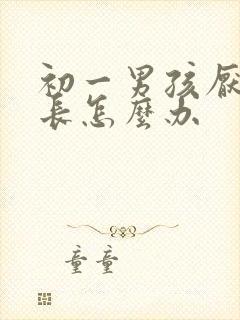 初一男孩厌
長怎麼办
童童